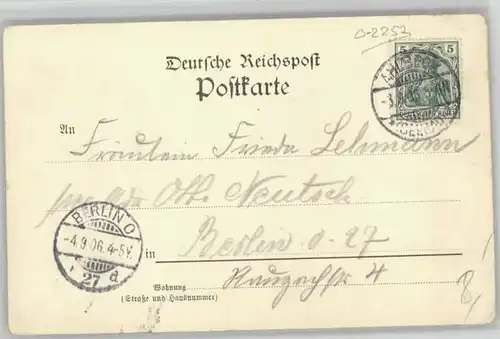 0-2253
Deutsche Reichspost
Postkarte
5 5
An
Fräulein Frieda Lehmann
Otto Neutsch
BERLIN O
-4.9.06.4-5V.
27 d
in Berlin O-27
Wohnung
(Straße und Hausnummer)
4